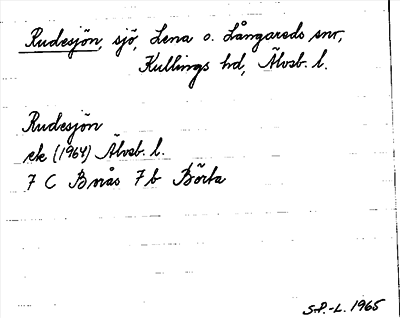 Rudesjön, sjö, Lena o. Långareds snr,
Kullings hd, Älvsb. l.
Rudesjön
ek (1964) Älvsb. l.
7 C Borås 7 b Börta
S.P.-L. 1965